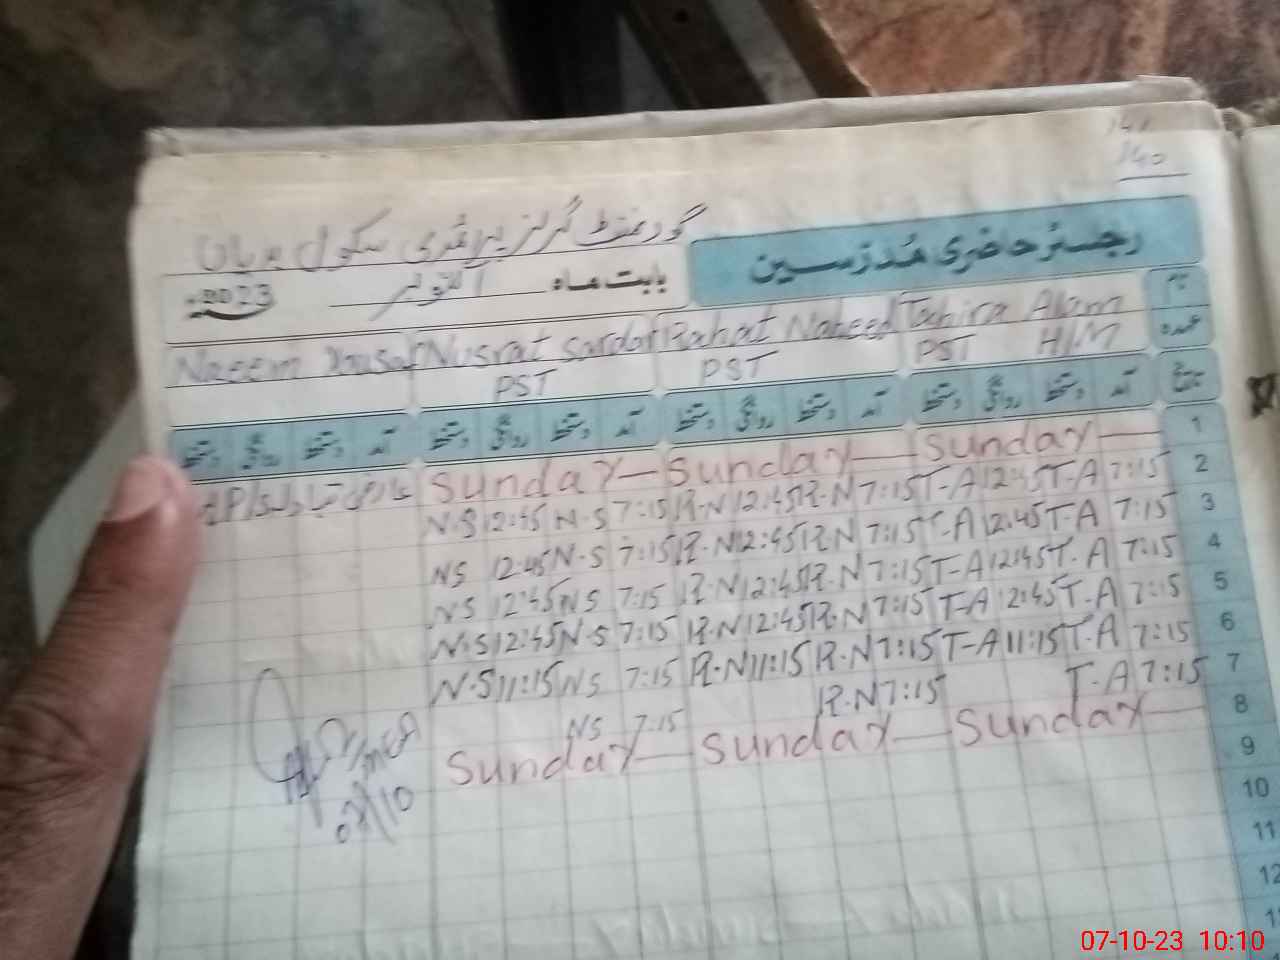 141
140
گورنمنٹ گرلز پرائمری سکول
رجسٹر حاضری مدرسین
بابت ماہ اکتوبر 2023ء
نام Tahira Alam Rahat Naheed Nusrat Sardar Naeem
عہدہ PST H/M PST PST
تاریخ آمد دستخط روانگی دستخط آمد دستخط روانگی دستخط آمد دستخط روانگی دستخط آمد دستخط روانگی دستخط
1 Sunday Sunday Sunday
2 7:15 T-A 12:45 T-A 7:15 R.N 12:45 R.N 7:15 N-S 12:45 N.S
3 7:15 T-A 12:45 T-A 7:15 R.N 12:45 R.N 7:15 N-S 12:45 NS
4 7:15 T-A 12:45 T-A 7:15 R.N 12:45 R.N 7:15 NS 12:45 NS
5 7:15 T-A 12:45 T-A 7:15 R.N 12:45 R.N 7:15 N-S 12:45 N.S
6 7:15 T-A 11:15 T-A 7:15 R.N 11:15 R.N 7:15 NS 11:15 N.S
7 7:15 T-A 7:15 R.N 7:15 NS
8 Sunday Sunday Sunday
9
10
11
12
07/10
07-10-23 10:10